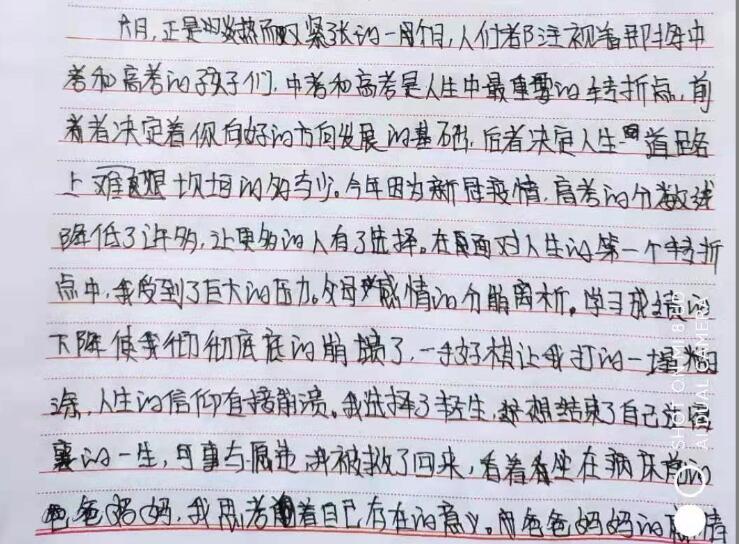 六月,正是炎热而又紧张的一个月,人们都注视着那些中
考和高考的孩子们,中考和高考是人生中最重要的转折点,前
者决定着你向好的方向发展的基础,后者决定人生道路
上坎坷的多与少。今年因为新冠疫情,高考的分数线
降低了许多,让更多的人有了选择。在面对人生的第一个转折
点中,我受到了巨大的压力。父母感情的分崩离析。学习成绩的
下降使我彻彻底底的崩溃了,一手好棋让我打的一塌糊
涂,人生的信仰直接崩溃。我选择了轻生,想结束了自己这
的一生,可事与愿违我被救了回来,看着坐在病床前的
爸妈妈,我思考着自己存在的意义。爸爸妈妈的情
SHOT ON MI 8 UD
AI DUAL CAMERA